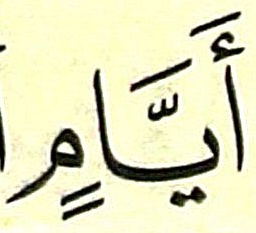 أَيَّامٍ